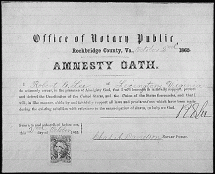 Office of Notary Public,
Rockbridge County, Va., October 2nd 1865
AMNESTY OATH.
I Robert E. Lee of Lexington Virginia
do solemnly swear, in the presence of Almighty God, that I will henceforth faithfully support, protect
and defend the Constitution of the United States, and the Union of the States thereunder, and that I
will, in like manner, abide by and faithfully support all laws and proclamations which have been made
during the existing rebellion with reference to the emancipation of slaves, so help me God.
R E Lee
Sworn to and subscribed before me, this
2nd day of October 1865.
Notary Public